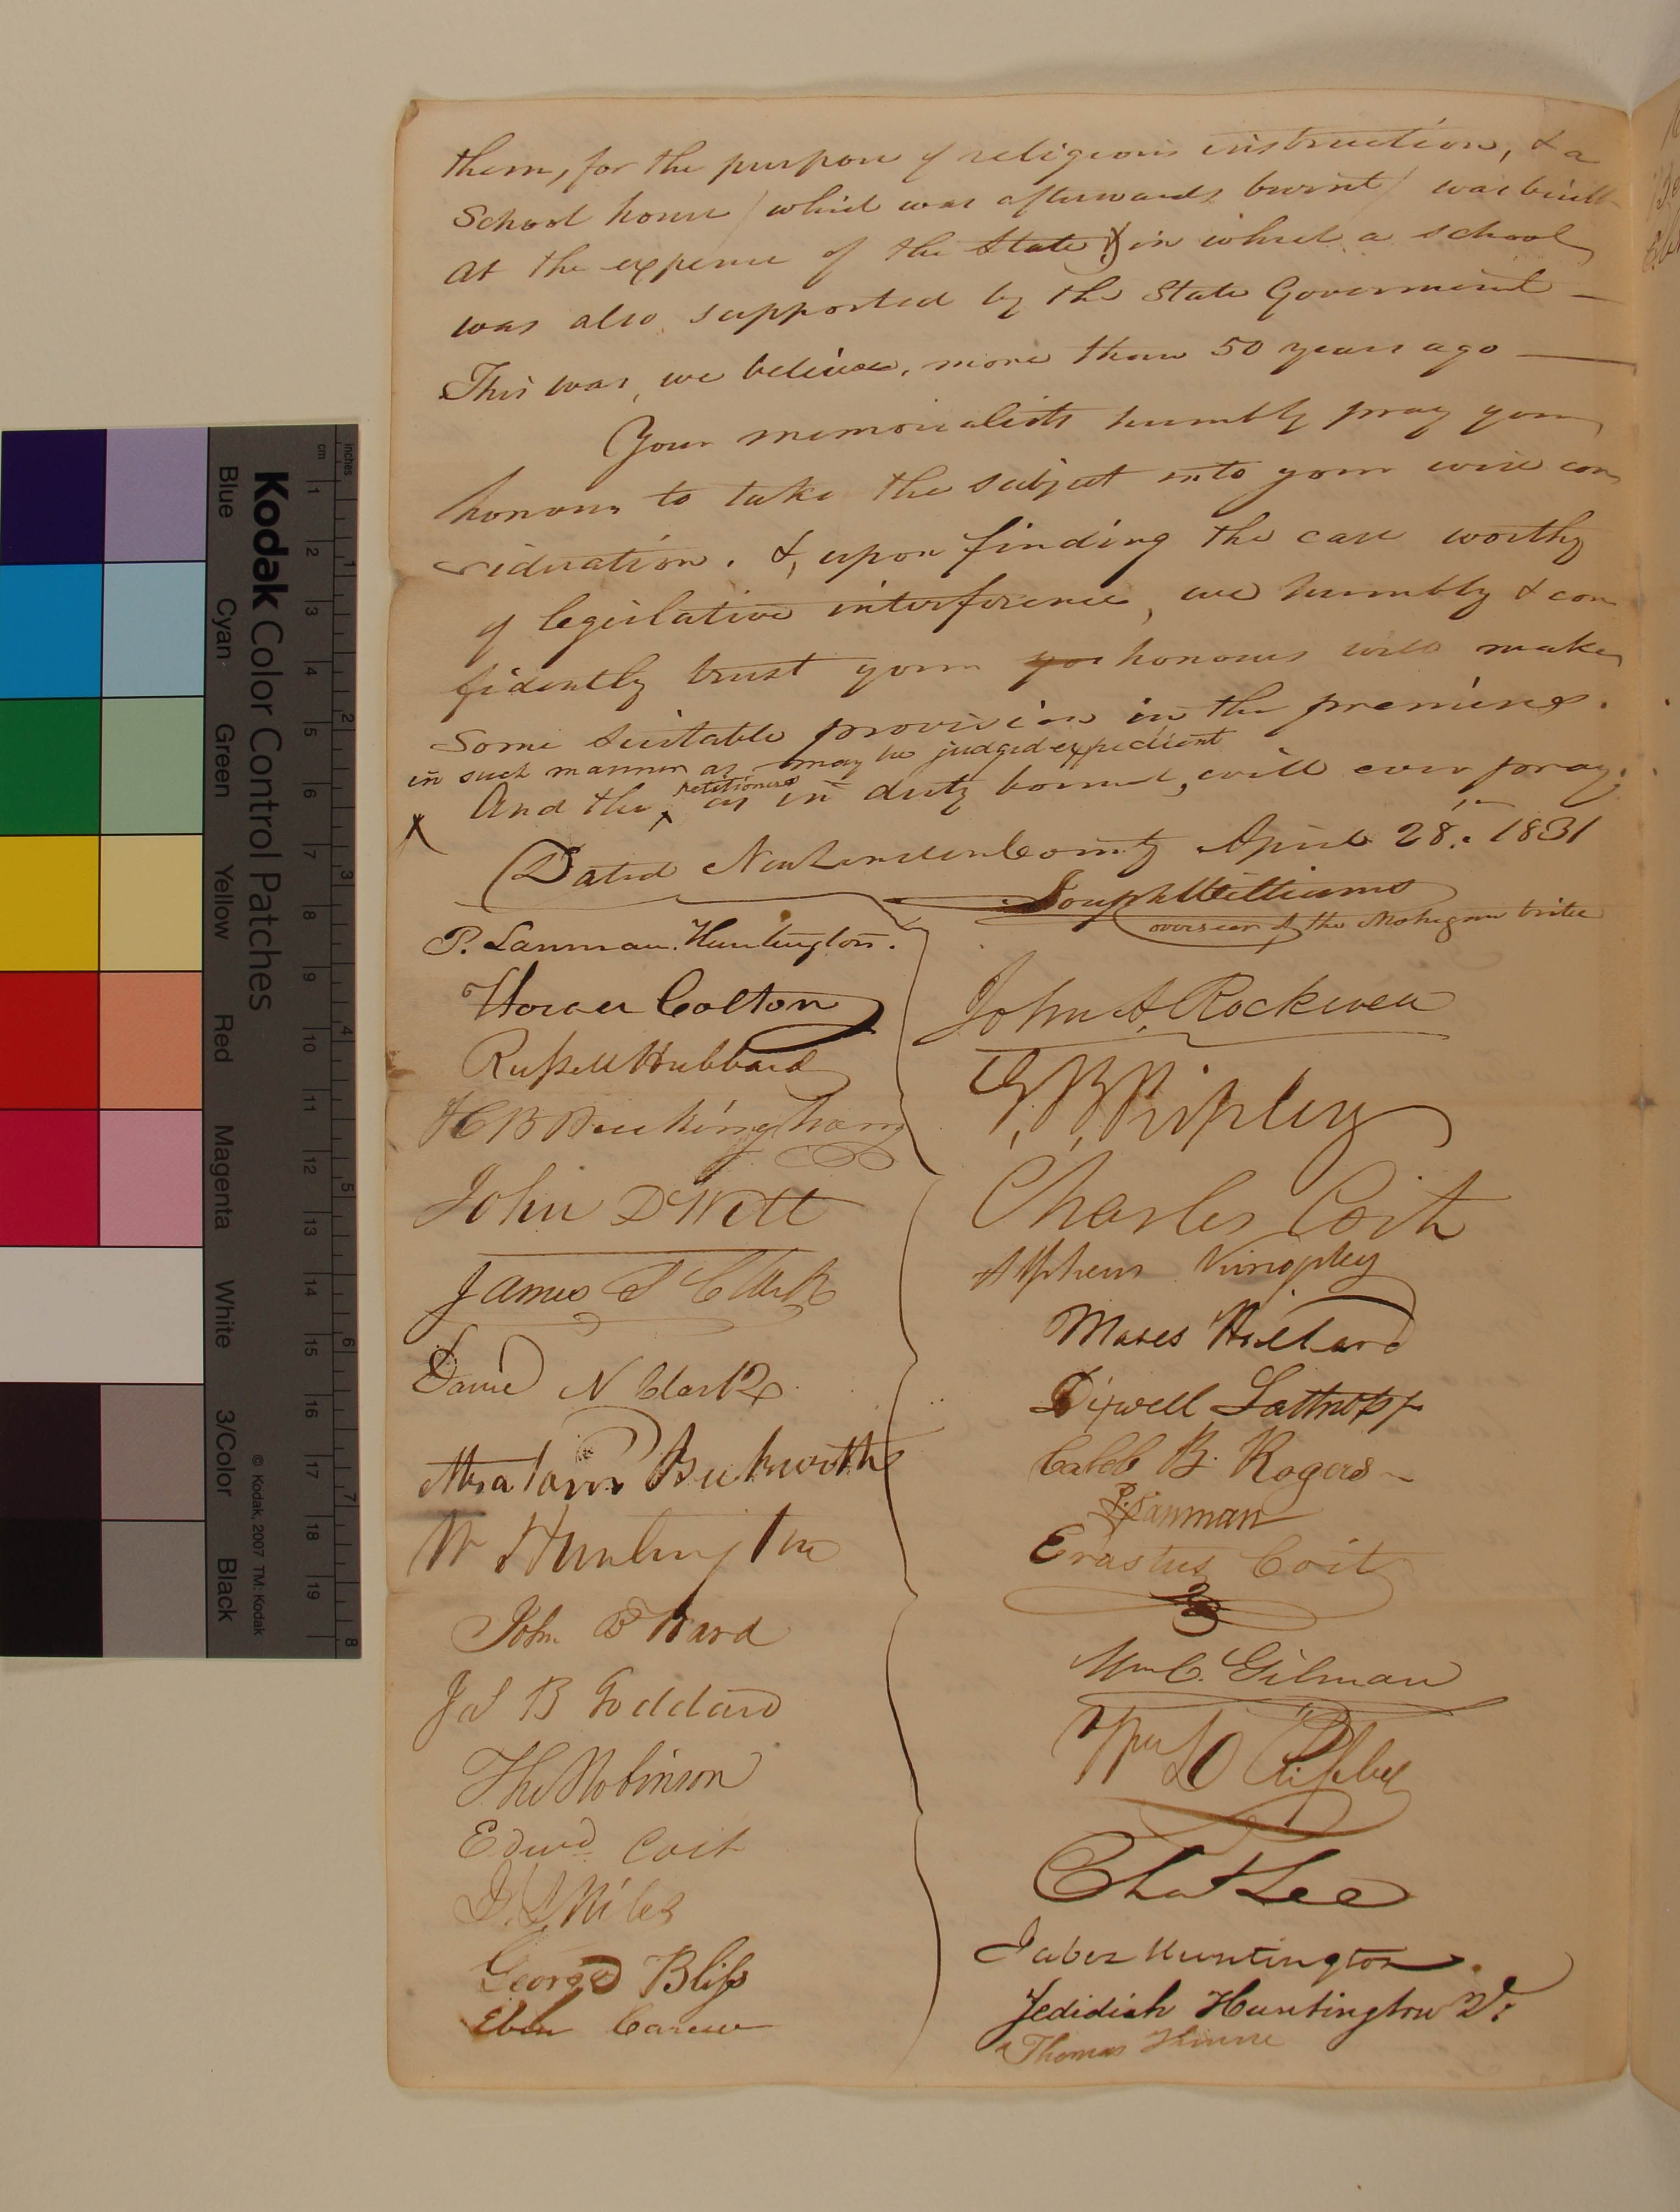 them, for the purpose of religious instruction, & a
School house / which was afterwards burnt / was built
at the expense of the State) in which a school
was also supported by the State Government —
This was, we believe, more than 50 years ago —
Your memorialists humbly pray your
honours to take the subject into your wise con
sideration. &, upon finding the case worthy
of legislative interference, we humbly & con
fidently trust your honours will make
some suitable provision in the premises.
in such manner as may be judged expedient
And the petitioners as in duty bound, will ever pray.
X
Dated New London County April 28th. 1831
Joseph Williams
overseer of the Mohegan tribe
P. Lanman Huntington.
Horace Colton
Russell Hubbard
H B Buckingham
John DWitt
James S Clark
David N Clark
Abraham Buckworth
W Huntington
John B Ward
Js B Goddard
Tho Robinson
Edwd Coit
D. S. Miles
George Bliss
Eben Carew
John A. Rockwell
G. B. Ripley
Charles Coit
Alpheus Kingsley
Moses Hillard
Dixwell Lathrop
Caleb B. Rogers
J. Lanman
Erastus Coit
Wm C. Gilman
Wm D Ripley
Cha Lee
Jabez Huntington.
Jedidiah Huntington 2d.
Thomas Kinne
Kodak Color Control Patches
Blue
Cyan
Green
Yellow
Red
Magenta
White
3/Color
Black
© Kodak, 2007 TM: Kodak
cm 1 2 3 4 5 6 7 8 9 10 11 12 13 14 15 16 17 18 19
inches 1 2 3 4 5 6 7 8